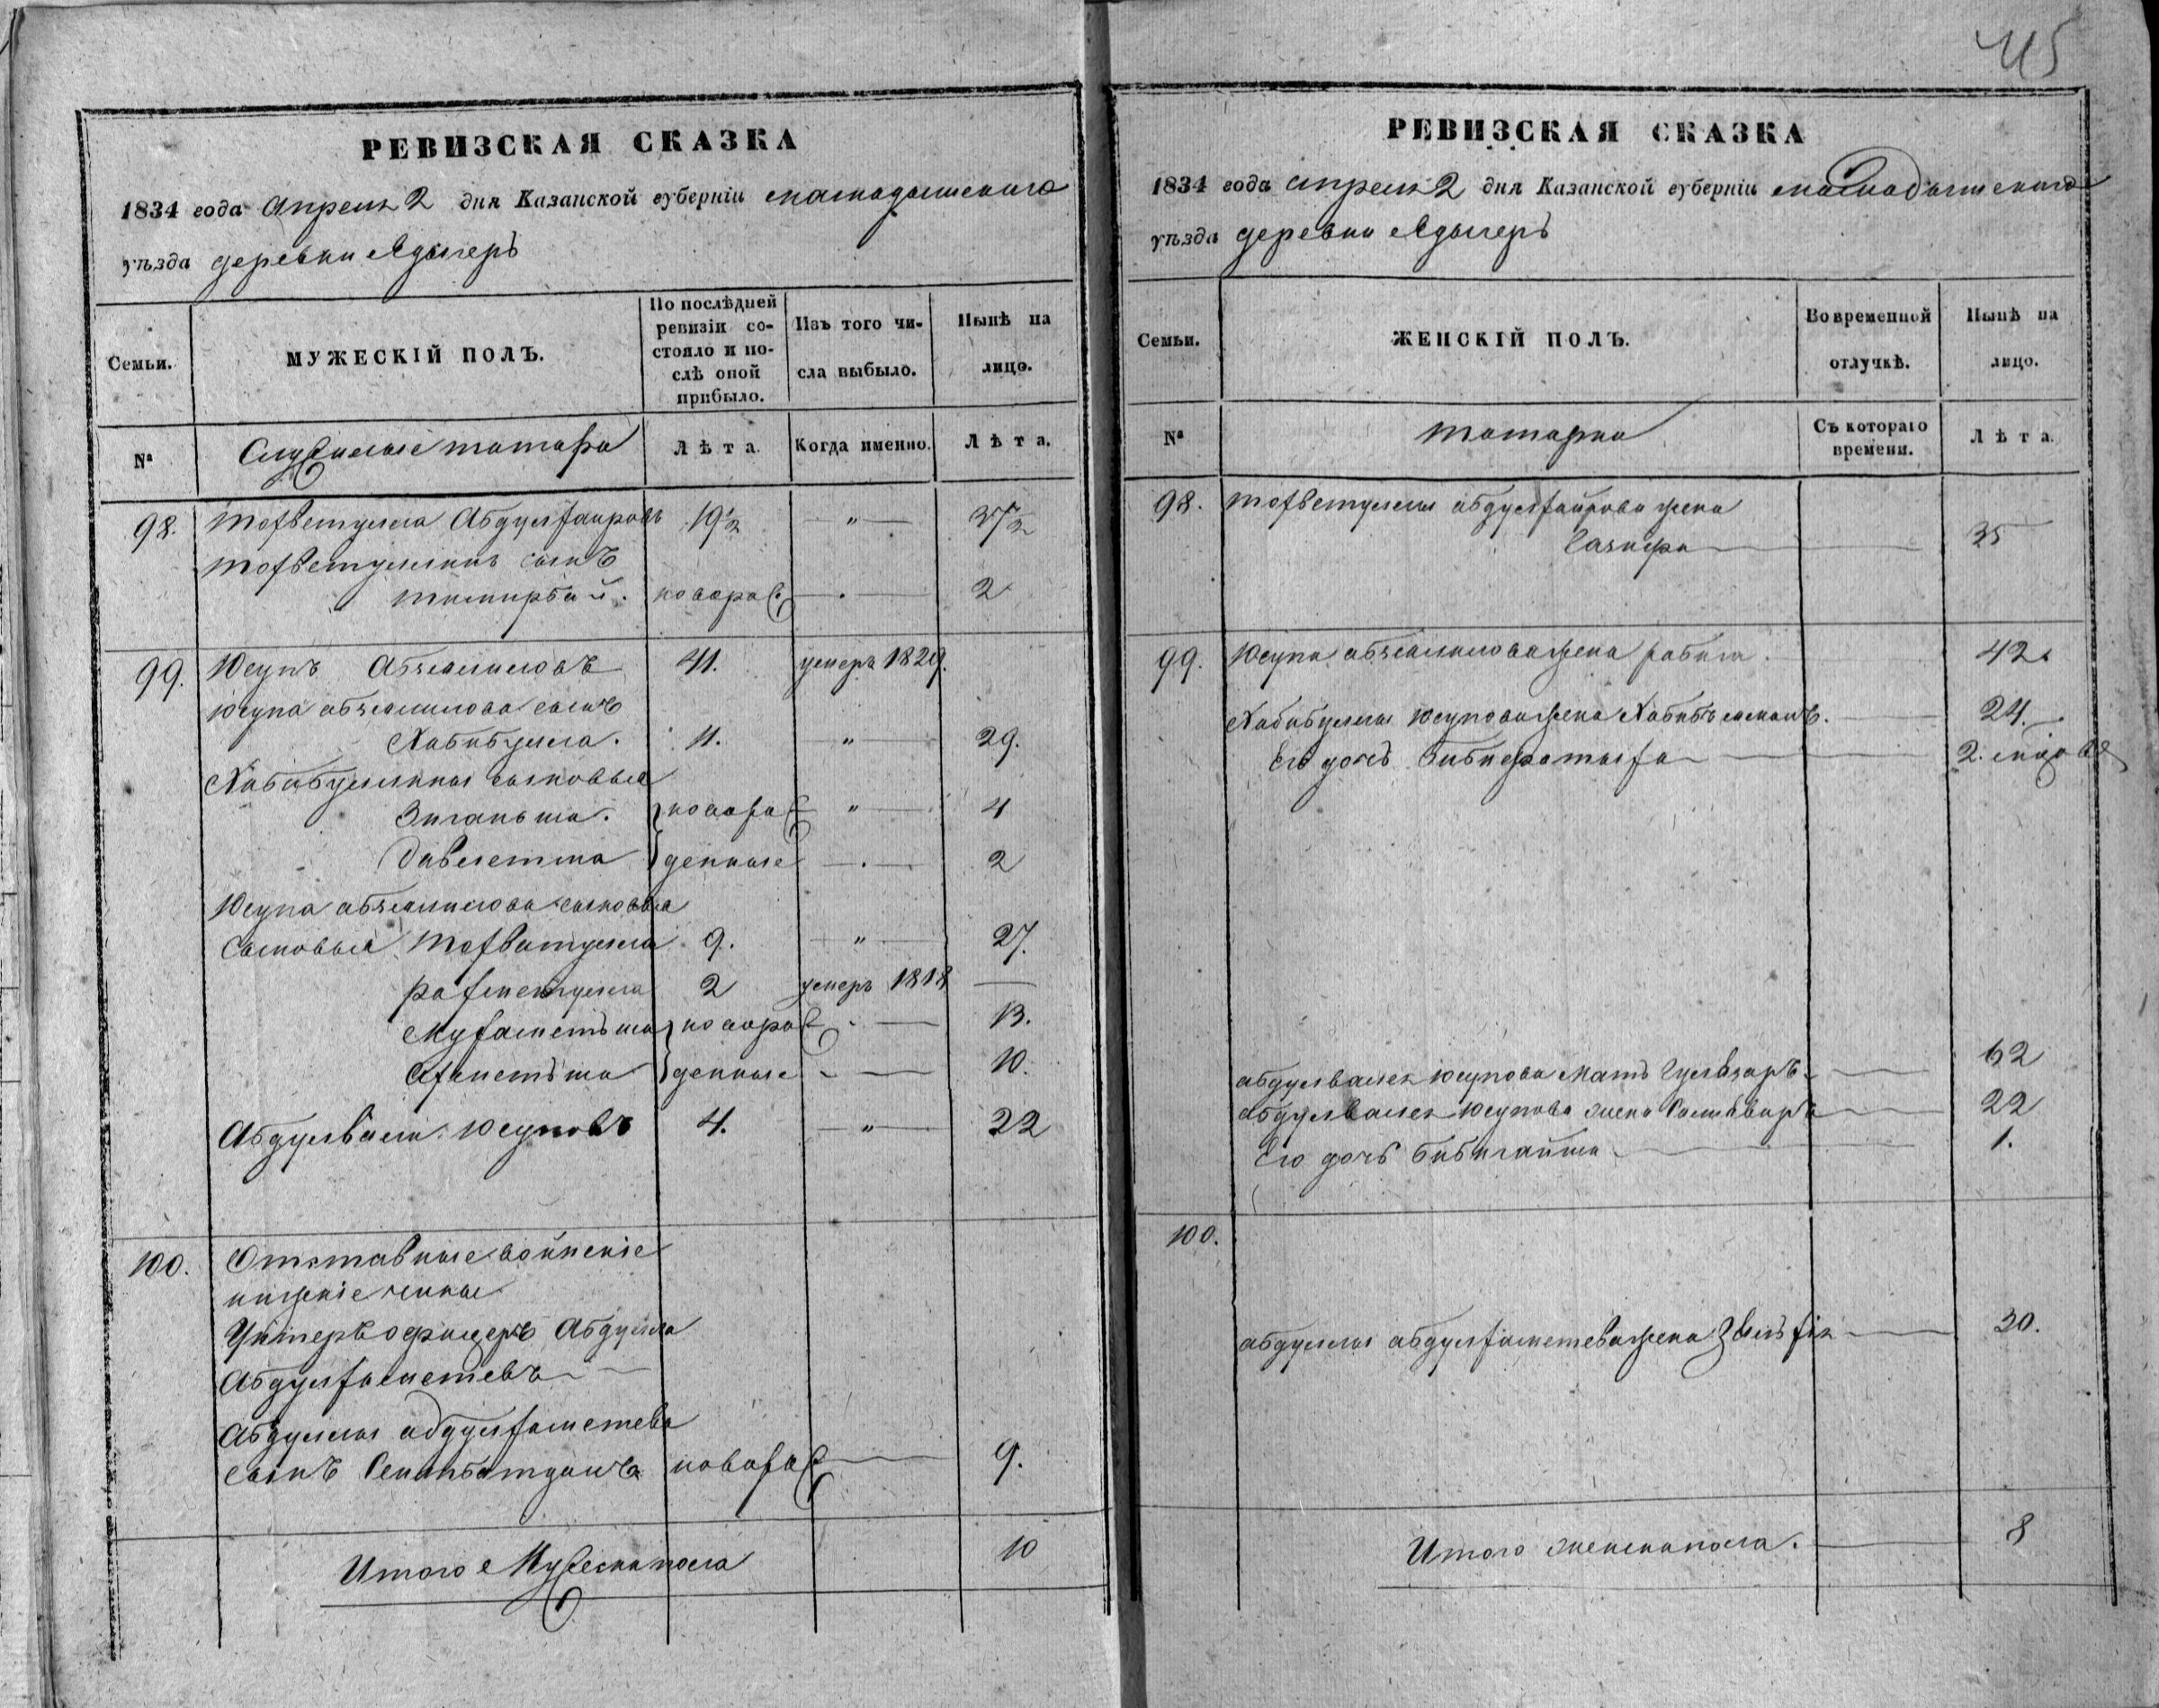 415
РЕВИЗСКАЯ СКАЗКА
1834 года апреля 2 дня Казанской губерніи мамадышскаго
уѣзда деревни Адыгеръ
Семьи.
МУЖЕСКІЙ ПОЛЪ.
По послѣдней ревизіи состояло и послѣ оной прибыло.
Изъ того числа выбыло.
Нынѣ на лицо.
№
Служилые татара
Лѣта.
Когда именно.
Лѣта.
98. Тохветулла Абдулхаировъ 19½ — " — 37½
Тохветуллинъ сынъ
тимирбай. новорож — . — 2
99. Юсупъ Абзелиловъ 41. умеръ 1829.
Юсупа абзелилова сынъ
Хабибулла. 11. — " — 29.
Хабибуллины сыновья
Зиганьша. новорож — " — 4
Давлетша денные — . — 2
Юсупа абзелилова сыновья
Сыновья Тохватулла 9. — " — 27.
рахметулла 2 умеръ 1818 —
Мухаметьша новорож . — 13.
Ахметьша денные — 10.
Абдулвали Юсуповъ 4. — " — 22
100. Отставные воинскіе
нижніе чины
Унтеръ офицеръ Абдулла
Абдулхаметевъ —
Абдуллы абдулхаметева
сынъ новорож — 9.
Итого Мужеска пола 10
РЕВИЗСКАЯ СКАЗКА
1834 года апреля 2 дня Казанской губерніи мамадышскаго
уѣзда деревни Адыгеръ
Семьи.
ЖЕНСКІЙ ПОЛЪ.
Во временной отлучкѣ.
Нынѣ на лицо.
№
татарки
Съ котораго времени.
Лѣта.
98. Тохветуллы абдулхаирова жена
— 35
99. Юсупа абзелилова жена рабига. 42.
Хабибуллы Юсупова жена Хабибъямалъ. — 24.
Его дочь — 2.
абдулвалея Юсупова мать — 62
абдулвалея Юсупова жена — 22
Его дочь бибигайша — 1.
100.
абдуллы абдулхаметева жена — 30.
Итого женска пола. — 8